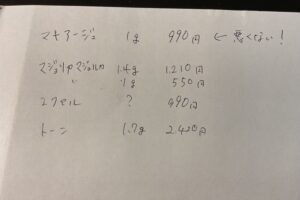 マキアージュ 1g 990円 ← 悪くない!
マジョリカマジョルカ 1.4g 1,210円
〃 1g 550円
エクセル ? 990円
トーン 1.7g 2,420円